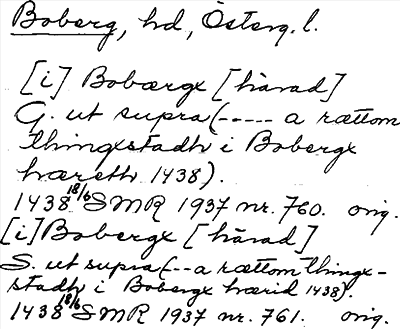 Boberg, hd, Österg. l.
[i] Bobærgx [hærad]
G. ut supra (----- a rættom
thingxstadh i Bobergx
hæreth 1438).
1438 18/6 SMR 1937 nr. 760. orig.
[i] Bobergx [hærad]
S. ut supra (-- a rættom thingx-
stadh i Bobergx hærid 1438).
1438 18/6 SMR 1937 nr. 761. orig.